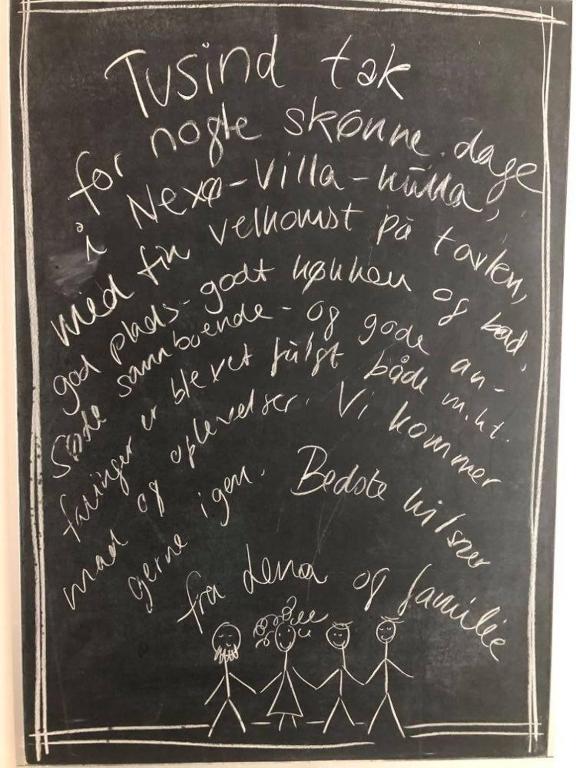 Tusind tak
for nogle skønne dage
i Nexø-Villa-Kulla,
med fin velkomst på tavlen,
god plads - godt køkken og bad,
Søde samboende - og gode an-
färinger er blevet fulgt både m.h.t.
mad og oplevelser. Vi kommer
gerne igen. Bedste hilsner
fra Lena og familie